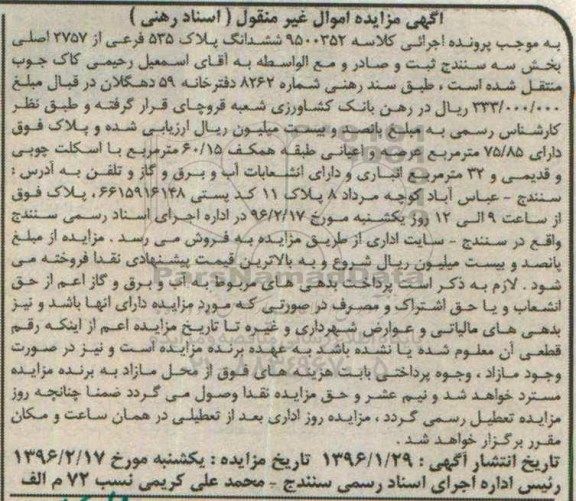 آگهی مزایده اموال غیر منقول ( اسناد رهنی )
به موجب پرونده اجرائی کلاسه ۹۵۰۰۳۵۲ ششدانگ پلاک ۵۳۵ فرعی از ۲۷۵۷ اصلی
بخش سه سنندج ثبت و صادر و مع الواسطه به آقای اسمعیل رحیمی کاک جوب
منتقل شده است ، طبق سند رهنی شماره ۸۲۶۲ دفترخانه ۵۹ دهگلان در قبال مبلغ
۳۳۳/۰۰۰/۰۰۰ ریال در رهن بانک کشاورزی شعبه قروچای قرار گرفته و طبق نظر
کارشناس رسمی به مبلغ پانصد و بیست میلیون ریال ارزیابی شده و پلاک فوق
دارای ۷۵/۸۵ مترمربع عرصه و اعیانی طبقه همکف ۶۰/۱۵ مترمربع با اسکلت چوبی
و قدیمی و ۳۲ مترمربع انباری و دارای انشعابات آب و برق و گاز و تلفن به آدرس :
سنندج - عباس آباد کوچه مرداد ۸ پلاک ۱۱ کد پستی ۶۶۱۵۹۱۶۱۴۸، پلاک فوق
از ساعت ۹ الی ۱۲ روز یکشنبه مورخ ۹۶/۲/۱۷ در اداره اجرای اسناد رسمی سنندج
واقع در سنندج - سایت اداری از طریق مزایده به فروش می رسد . مزایده از مبلغ
پانصد و بیست میلیون ریال شروع و به بالاترین قیمت پیشنهادی نقدا فروخته می
شود . لازم به ذکر است پرداخت بدهی های مربوط به آب و برق و گاز اعم از حق
انشعاب و یا حق اشتراک و مصرف در صورتی که مورد مزایده دارای آنها باشد و نیز
بدهی های مالیاتی و عوارض شهرداری و غیره تا تاریخ مزایده اعم از اینکه رقم
قطعی آن معلوم شده یا نشده باشد به عهده برنده مزایده است و نیز در صورت
وجود مازاد ، وجوه پرداختی بابت هزینه های فوق از محل مازاد به برنده مزایده
مسترد خواهد شد و نیم عشر و حق مزایده نقدا وصول می گردد ضمنا چنانچه روز
مزایده تعطیل رسمی گردد ، مزایده روز اداری بعد از تعطیلی در همان ساعت و مکان
مقرر برگزار خواهد شد .
تاریخ انتشار آگهی : ۱۳۹۶/۱/۲۹ تاریخ مزایده : یکشنبه مورخ ۱۳۹۶/۲/۱۷
رئیس اداره اجرای اسناد رسمی سنندج - محمد علی کریمی نسب ۷۲ م الف
ParsNamadData